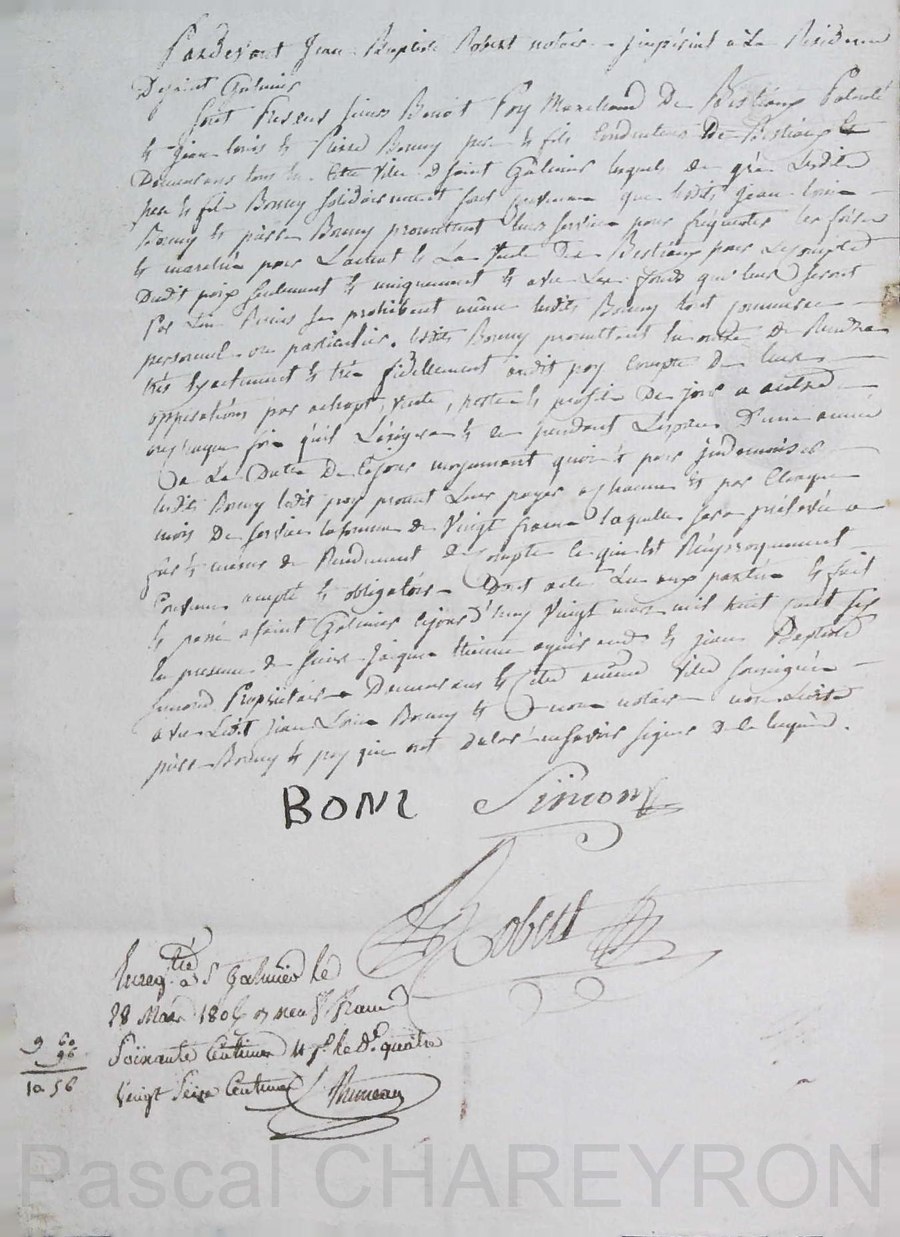 Pardevant Jean Baptiste Robert notaire impérial a La Residence
De saint Galmier
sont Presens sieurs Benoit Poy Marchand De Bestiaux Patenté
& Jean Louis & Pierre Bonny pere & fils Conducteurs De Bestiaux
Demeurans tous en Cette ville de saint Galmier lesquels de gré Lesdits
pere & fils Bonny solidairement sont convenus que lesdits Jean Louis
Bonny & pierre Bonny promettent leur service pour frequenter les foires
& marchés pour L'achat & La Vente Des Bestiaux pour Le compte
Dudit poy seulement & uniquement & avec Les fonds qui leur seront
par lui Remis se prohibent même lesdits Bonny tout commerce
personnel ou particulier. lesdits Bonny promettent en outre De Rendre
très Exactement & très fidellement audit poy Compte De leurs
opperations par achapt, vente, perte & profits De jour a autre
ou chaque fois qu'il L'exigera & ce pendant L'espace D'une année
De La Date De Ce jour moyennant quoi & pour jndemniser
lesdits Bonny ledit poy promet Leur payer a chacun & par Chaque
mois De service la somme de Vingt francs laquelle sera prélevée a
fur & mesure de Rendement de Compte ce qui est Réciproquement
Convenu accepté & obligatoire Dont acte Lu aux parties & fait
& passé a saint Galmier cejourd'huy Vingt mars mil huit cent six
En presence de sieurs Jacques & jean Baptiste
simond Propriétaires Demeurans & Cette même Ville soussignés
avec Ledit jean Louis Bonny & nous notaire non Ledit
pierre Bonny & poy qui ont déclaré ne savoir signer de ce Enquis.
BONI Simon
Robert
Enregtré a St Galmier le
28 Mars 1806 neuf francs
Soixante Centimes
vingt Seize Centimes
9 60
96
10 56
Pascal CHAREYRON